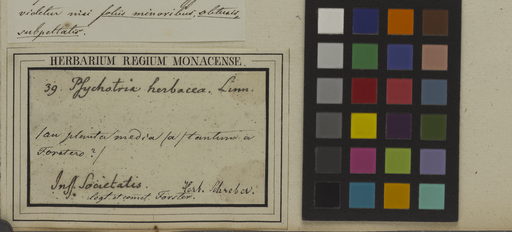 videtur nisi foliis minoribus, obtusis,
subpeltatis.
HERBARIUM REGIUM MONACENSE.
39. Psychotria herbacea. Linn.
(an planta media (a) tantum a
Forstero?)
Ins. Societatis. Herb. Schreber.
legt. et comit. Forster.